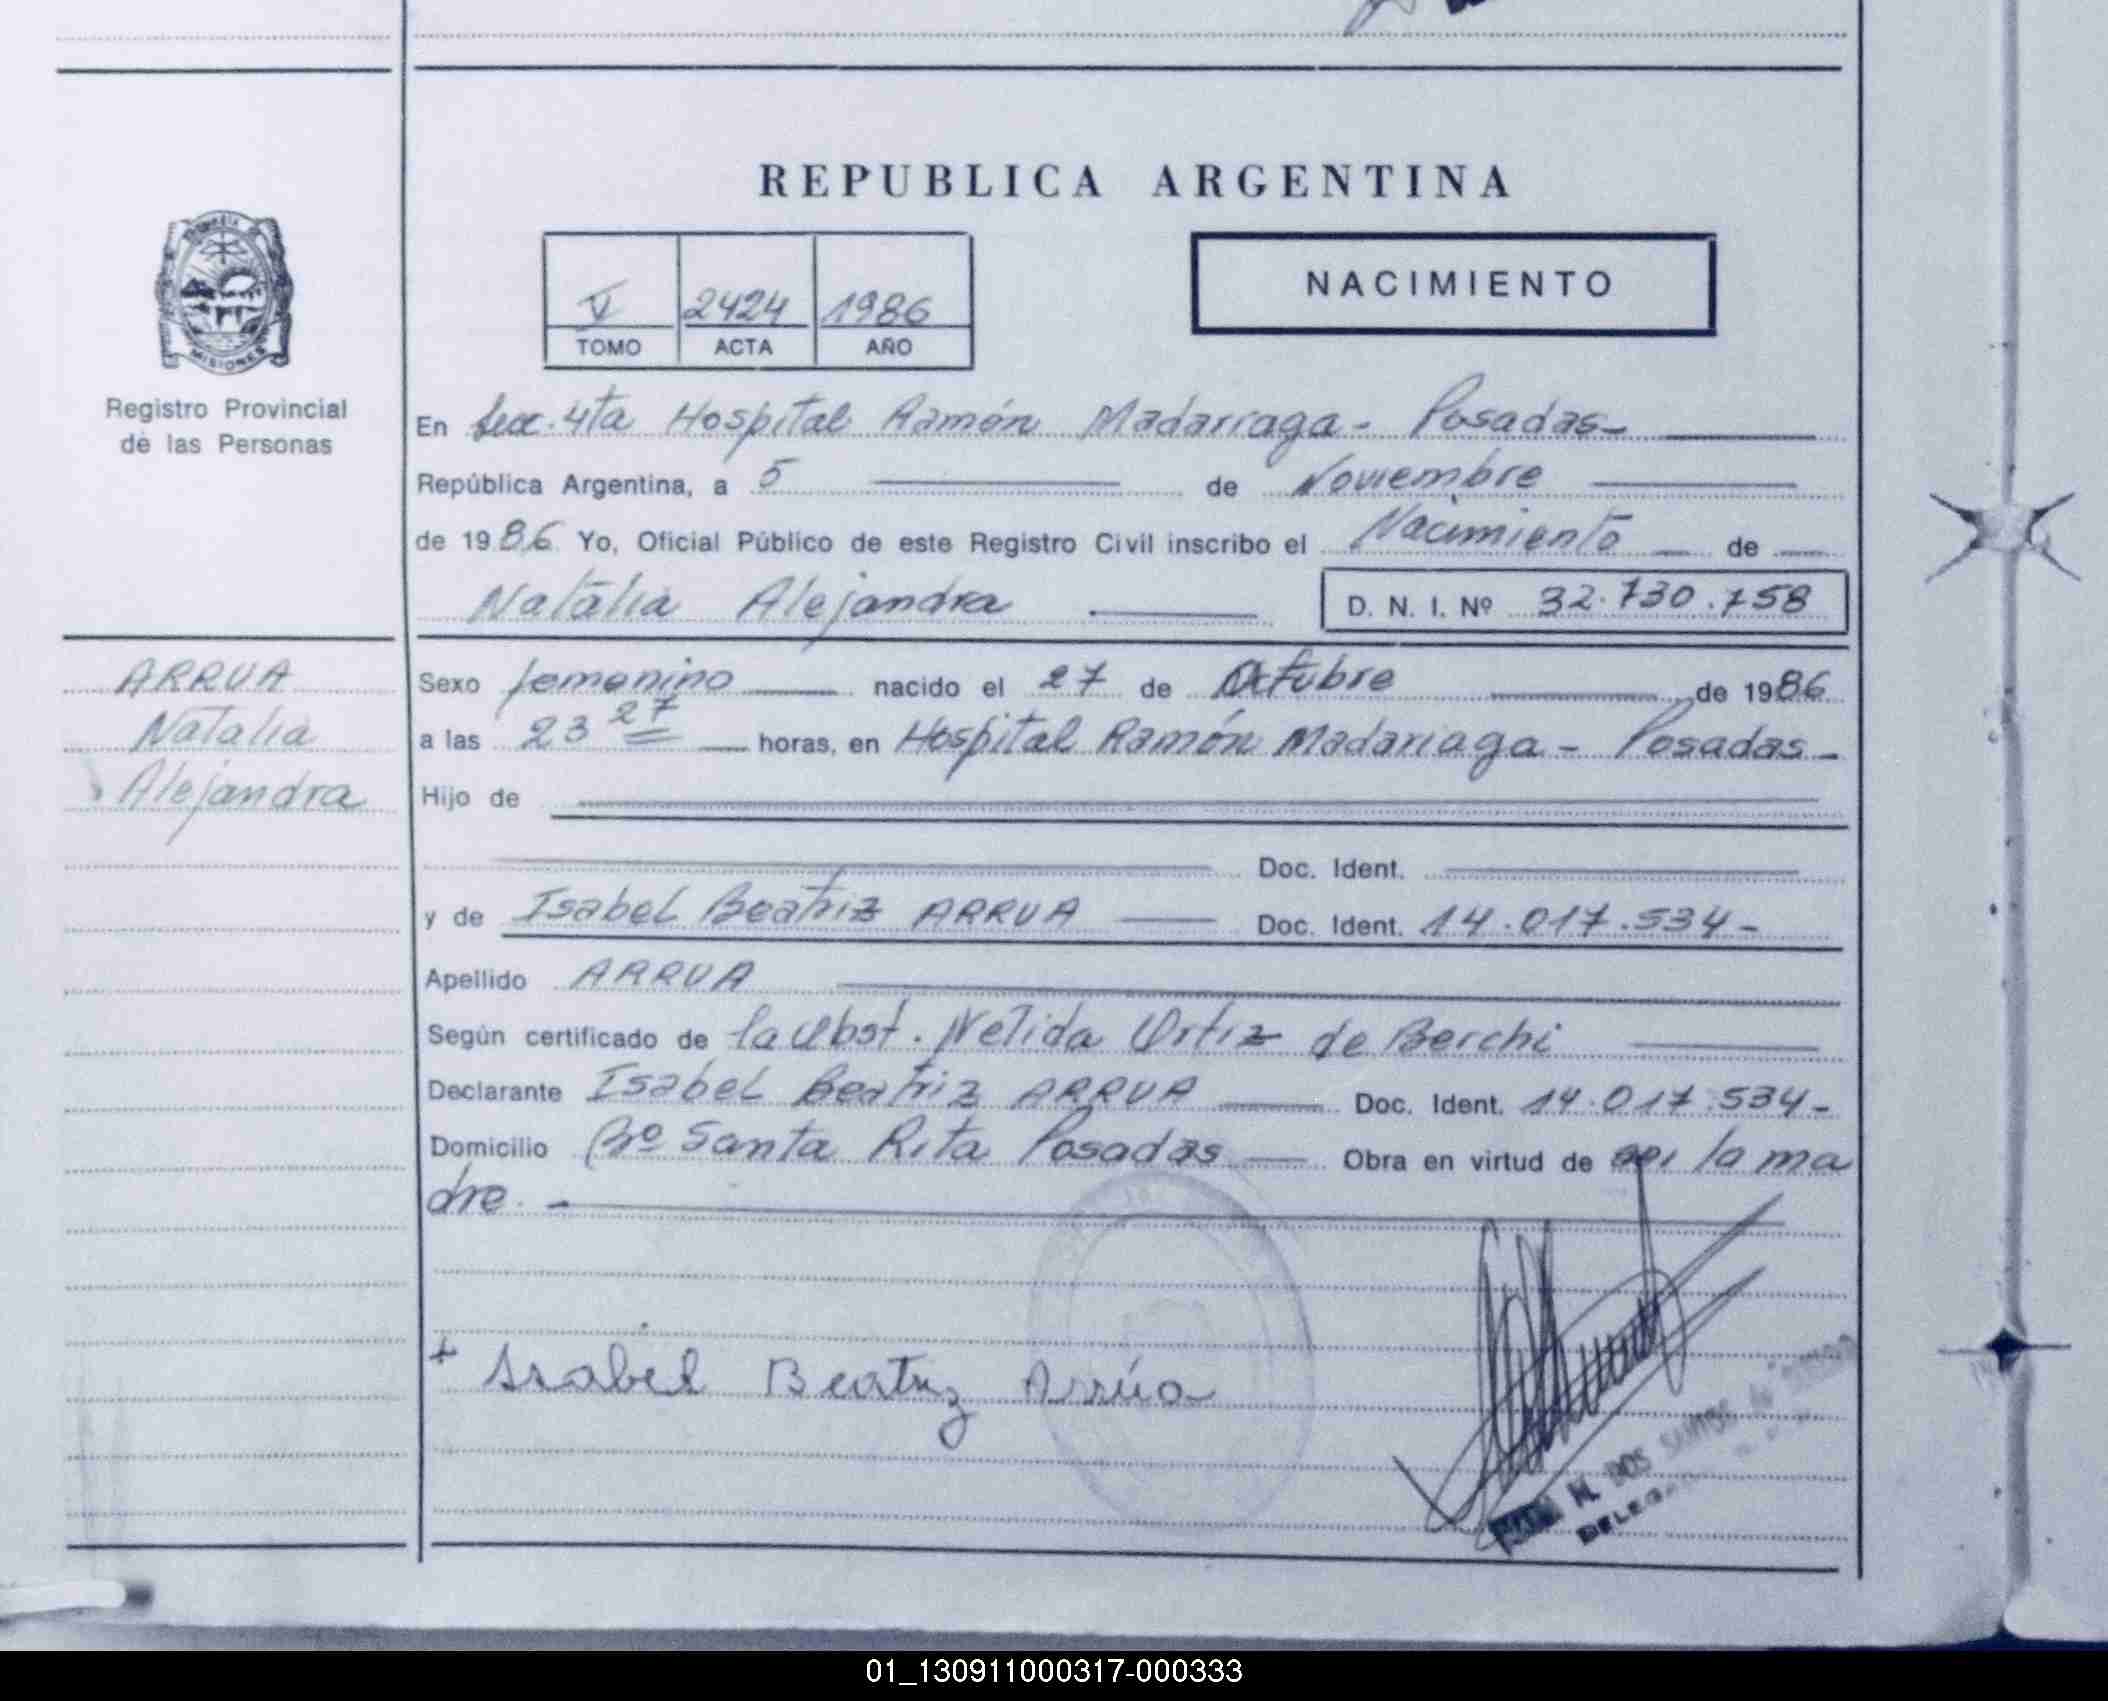 REPUBLICA ARGENTINA
V 2424 1986
TOMO ACTA AÑO
NACIMIENTO
MISIONES
Registro Provincial
de las Personas
En Secc. 4ta Hospital Ramón Madarriaga - Posadas -
República Argentina, a 5 de Noviembre
de 1986 Yo, Oficial Público de este Registro Civil inscribo el Nacimiento de
Natalia Alejandra D. N. I. Nº 32.730.758
ARRUA
Natalia
Alejandra
Sexo femenino nacido el 27 de Octubre de 1986
a las 23 27 horas, en Hospital Ramón Madariaga - Posadas -
Hijo de
Doc. Ident.
y de Isabel Beatriz ARRUA Doc. Ident. 14.017.534 -
Apellido ARRUA
Según certificado de la Obst. Nelida Ortiz de Berchi
Declarante Isabel Beatriz ARRUA Doc. Ident. 14.017.534 -
Domicilio Bº Santa Rita Posadas Obra en virtud de ser la ma
dre. -
+ Isabel Beatriz Arrúa
M. DOS SANTOS
01_130911000317-000333